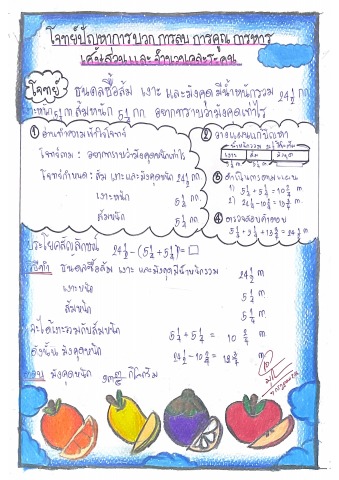 โจทย์ปัญหาการบวก การลบ การคูณ การหาร
เศษส่วนและจำนวนคละระคน
โจทย์ ชนดลซื้อส้ม เงาะ และมังคุดมีน้ำหนักรวม 24½ กก.
เงาะหนัก 5½ กก. ส้มหนัก 5¼ กก. อยากทราบว่ามังคุดเท่าไร
① อ่านทำความเข้าใจโจทย์
โจทย์ถาม : อยากทราบว่ามังคุดหนักเท่าไร
โจทย์กำหนด : ส้ม เงาะและมังคุดหนัก 24½ กก.
เงาะหนัก 5½ กก.
ส้มหนัก 5¼ กก.
② วางแผนแก้ปัญหา
เงาะ ส้ม มังคุด
③ ดำเนินการตามแผน
④ ตรวจสอบคำตอบ
ประโยคสัญลักษณ์ 24½ - (5½ + 5¼) = □
วิธีทำ ชนดลซื้อส้ม เงาะ และมังคุดมีน้ำหนักรวม 24½ ก
เงาะหนัก 5½ ก
ส้มหนัก 5¼ ก
จะได้เงาะรวมกับส้มหนัก 5½ + 5¼ = 10¾ ก
ดังนั้น มังคุดหนัก 24½ - 10¾ = 13¾ ก
ตอบ มังคุดหนัก ๑๓ กิโลกรัม